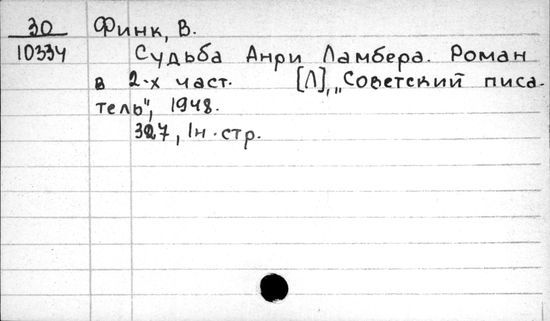 30 Финк, В.
10334 Судьба Анри Ламбера. Роман
в 2-х част. [Л], „Советский писа-
тель", 1948.
327, 1н. стр.